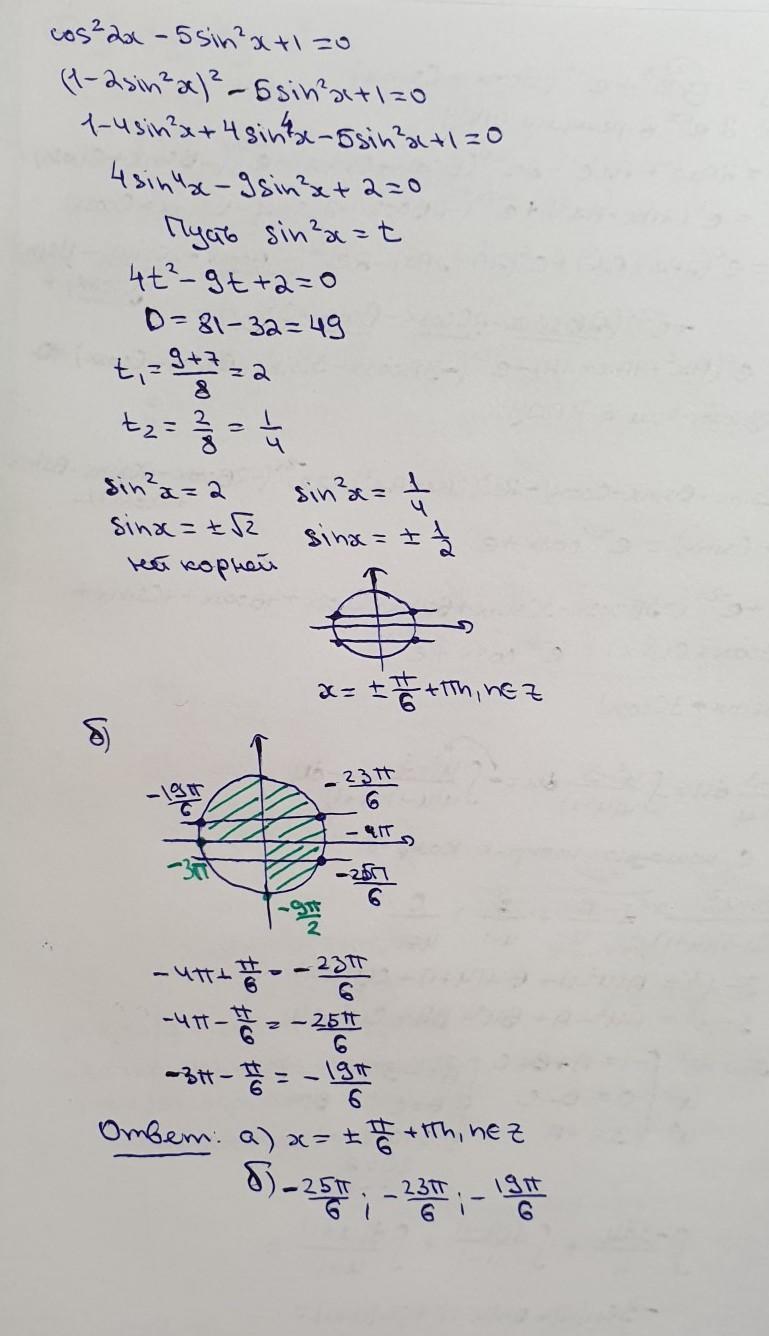 cos²2x - 5sin²x + 1 = 0
(1 - 2sin²x)² - 5sin²x + 1 = 0
1 - 4sin²x + 4sin⁴x - 5sin²x + 1 = 0
4sin⁴x - 9sin²x + 2 = 0
Пусть sin²x = t
4t² - 9t + 2 = 0
D = 81 - 32 = 49
t₁ = (9+7)/8 = 2
t₂ = 2/8 = 1/4
sin²x = 2 sin²x = 1/4
sinx = ±√2 sinx = ± 1/2
нет корней
x = ± π/6 + πn, n∈Z
б)
-19π/6 -23π/6
-4π
-3π -25π/6
-9π/2
-4π + π/6 = -23π/6
-4π - π/6 = -25π/6
-3π - π/6 = -19π/6
Ответ: а) x = ± π/6 + πn, n∈Z
б) -25π/6 ; -23π/6 ; -19π/6